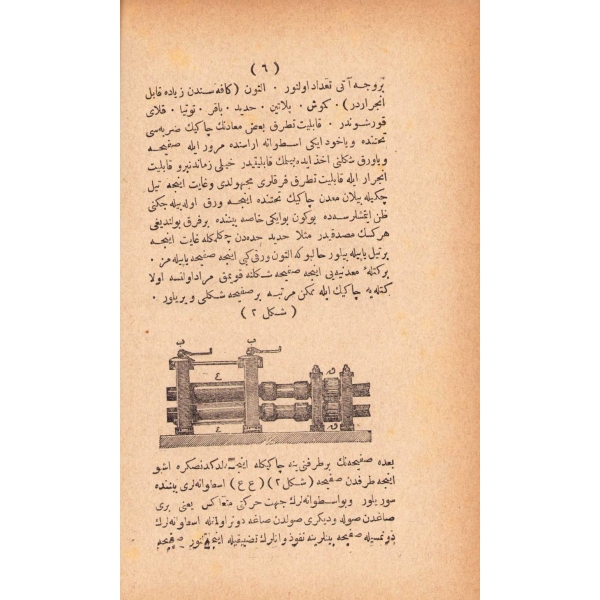 ( ٦ )
بروجه آتی تعداد اولنور ٠ التون (كافه سندن زیاده قابل
انجراردر) ٠ كوش ٠ پلاتین ٠ حدید ٠ باقر ٠ توتیا ٠ قلای
قورشوندر ٠ قابلیت تطرق بعض معادنك چاكیك ضربه سی
تحتنده ویاخود ایكی اسطوانه اراسنده مرور ایله صفیحه
ویاورق شكلنی اخذ ایده بیلمك قابلیتیدر خیلی زماندنبرو قابلیت
انجرار ایله قابلیت تطرق فرقلری مجهولدی وغایت اینجه تیل
چكیله بیلان معدن چاكیك تحتنده اینجه ورق اوله بیله جكنی
ظن ایتمشلرسه ده بوكون بوایكی خاصه بیننده برفرق بولندیغی
هركسك مصدقیدر مثلا حدید حده دن چكلمكله غایت اینجه
برتیل یاپیله بیلور حالبوكه التون ورقی كبی اینجه صفیحه یاپیله من ٠
بركتلهٔ معدنیه یی اینجه صفیحه شكلنه قویمق مراد اولنسه اولا
كتله یه چاكیك ایله ممكن مرتبه بر صفیحه شكلی ویریلور ٠
( شكل ٢ )
ب ب
ع ق
ع ق
بعده صفیحه نك برطرفنی ینه چاكیكله اینجه لدكدنصكره اشبو
اینجه طرفدن صفیحه ( شكل ٢ ) ( ع ع ) اسطوانه لری بیننده
سوریلور وبو اسطوانه لرك جهت حركتی متعاكس یعنی بری
صاغدن صوله ودیكری صولدن صاغه دونر اولمغله اسطوانه لرك
دونمسیله صفیحه بینلرینه نفوذ وانلرك تضییقیله اینجه لنور صفیحه